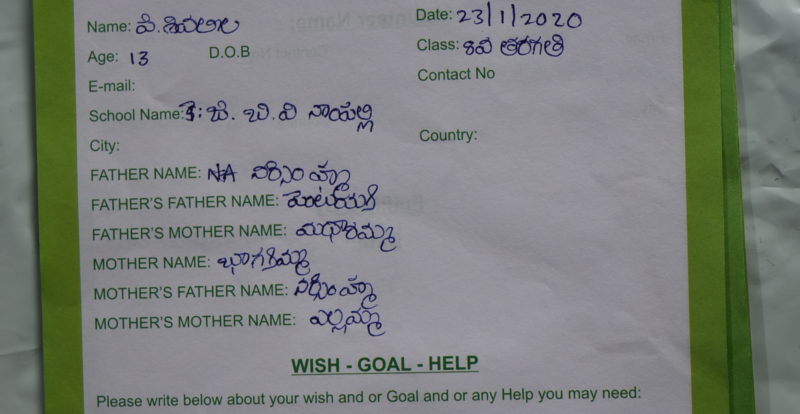 Name: పి. శివలాల Date: 23/1/2020
Age: 13 D.O.B Class: 8వ తరగతి
E-mail: Contact No
School Name: జె. బి. వి
City: Country:
FATHER NAME: NA నర్సింహ్మా
FATHER'S FATHER NAME:
FATHER'S MOTHER NAME:
MOTHER NAME:
MOTHER'S FATHER NAME: నర్సింహ్మా
MOTHER'S MOTHER NAME: ఎల్లమ్మ
WISH - GOAL - HELP
Please write below about your wish and or Goal and or any Help you may need: